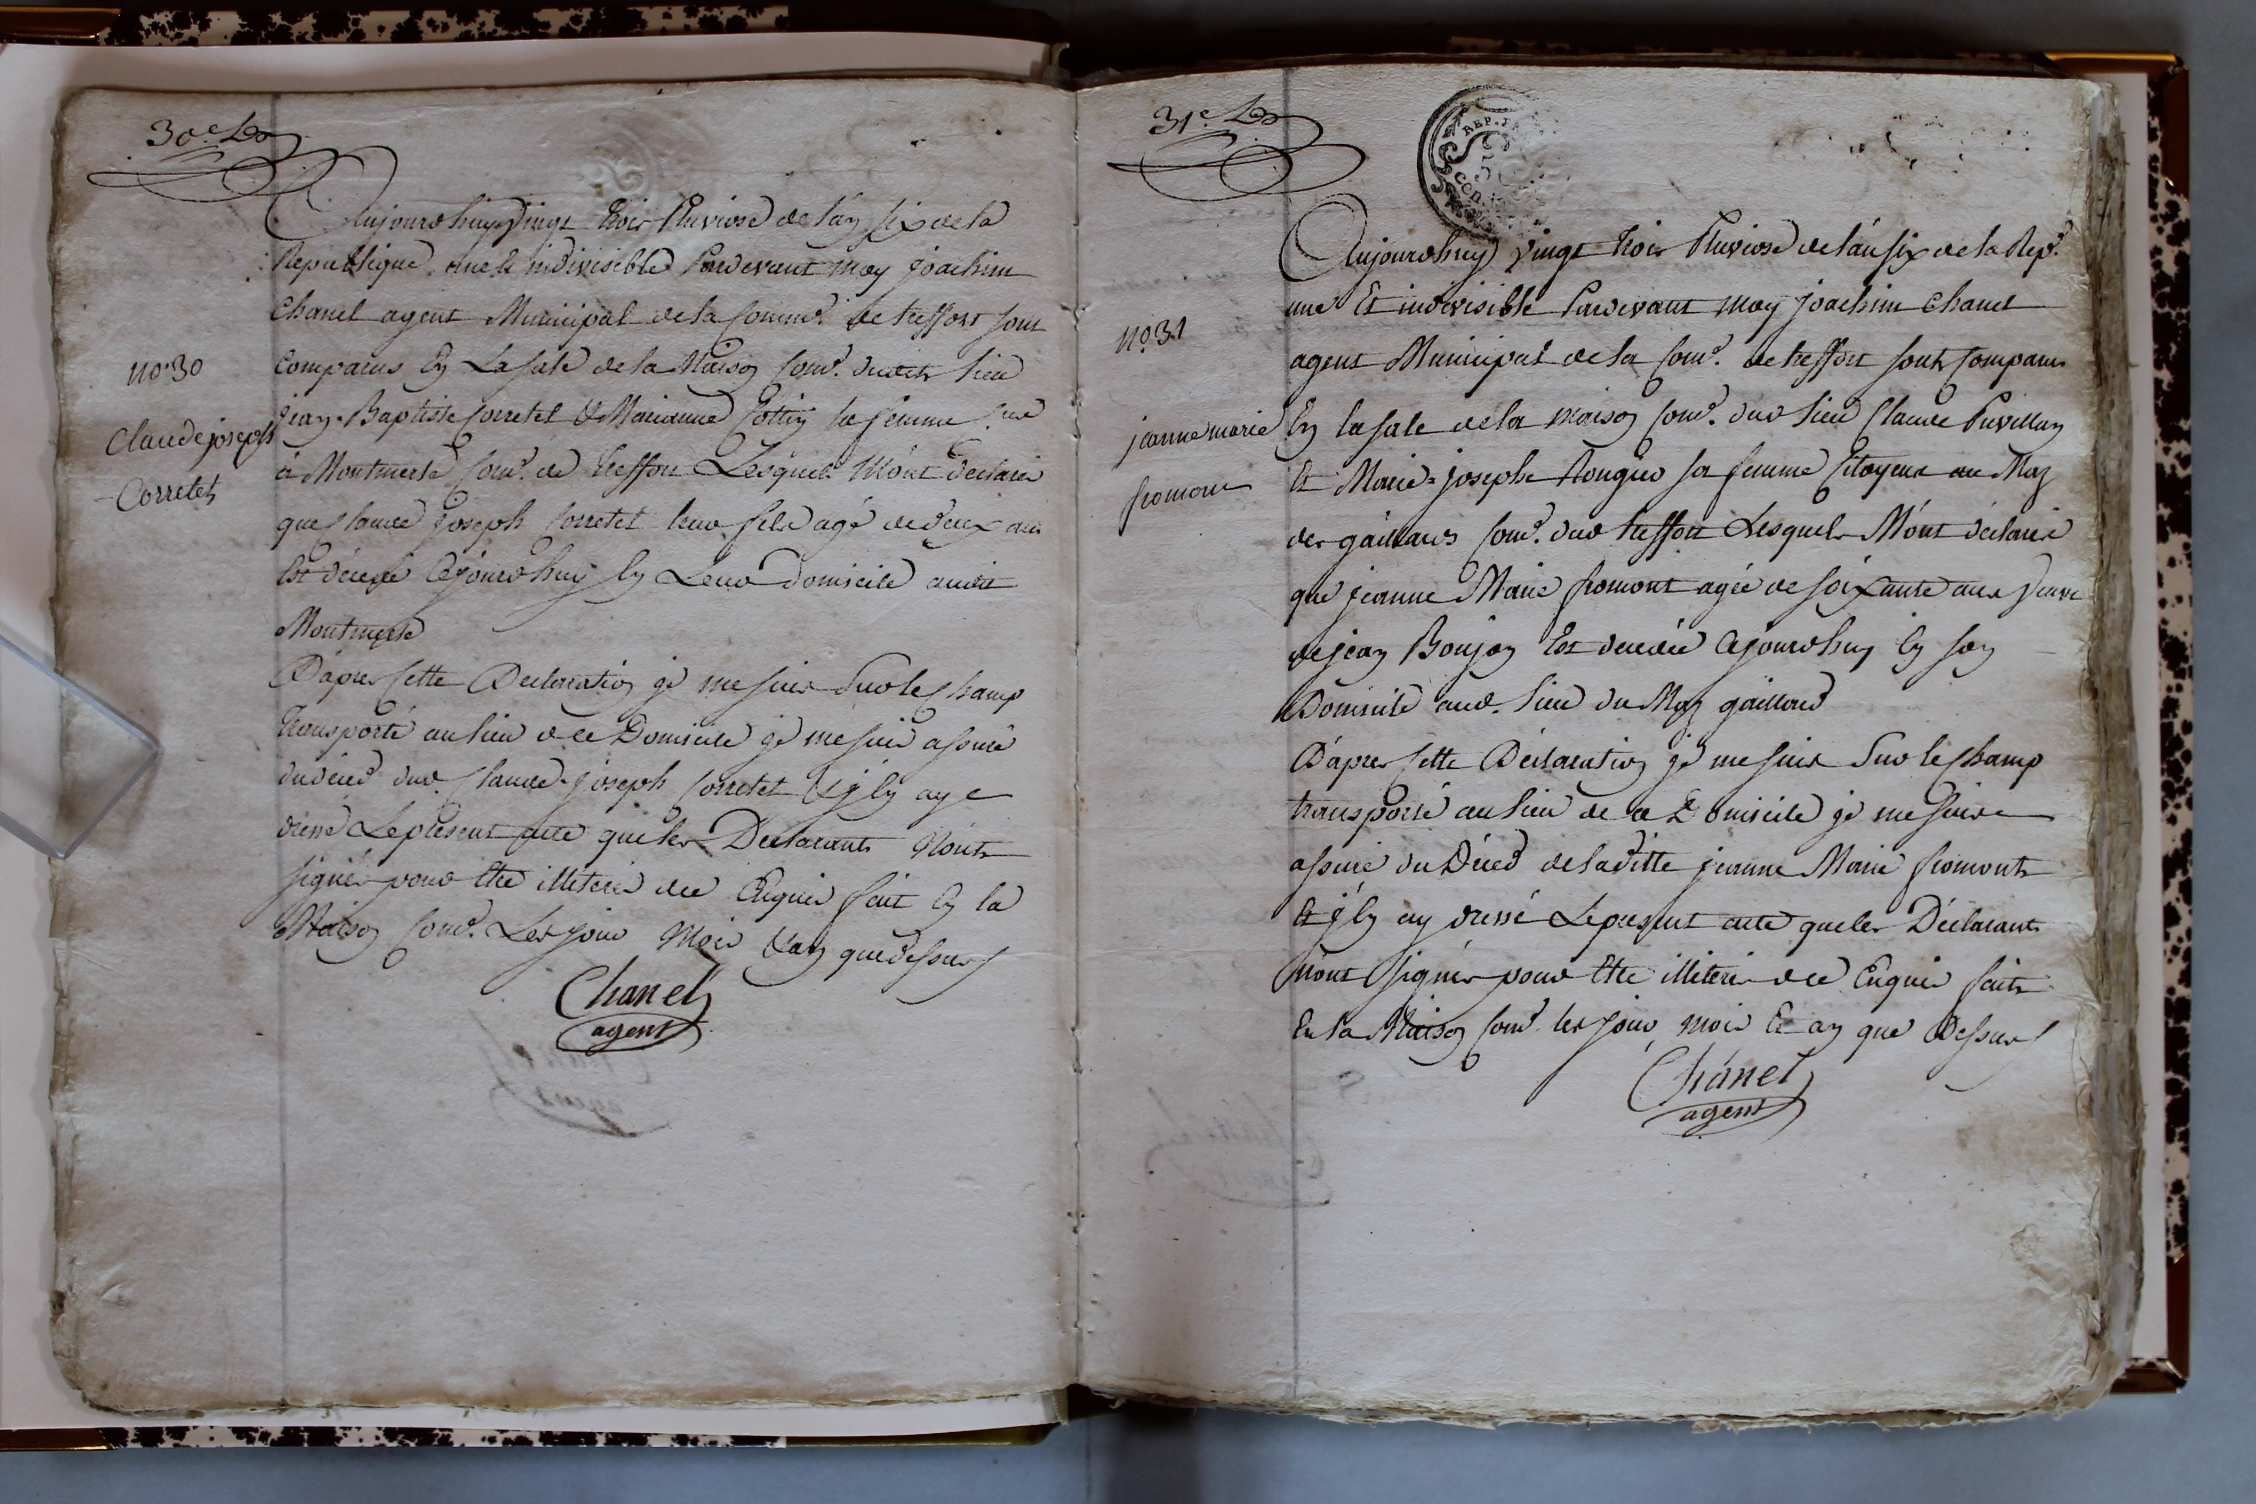 30e
Aujourdhuy vingt trois Pluviose de l'an six de la
Republique une et indivisible Pardevant moy joachim
Chanel agent Municipal de la Comme. de treffort sont
Comparus En La sale de la Maison Come. dudit lieu
no. 30
Claude joseph
Corretet
jean-Baptiste Corretet & Marianne Cottin sa femme
à Montmerle Come. de treffort Lesquels M'ont declaré
que Claude joseph Corretet leur fils agé de deux ans
Est décédé Cejourdhuy En Leur domicile audit
Montmerle
D'apres Cette Declaration je me suis Sur le Champ
transporté au lieu de ce Domicile je me suis assuré
du déces dud. Claude-joseph Corretet & j'En ay
dressé Le present acte que les Déclarants N'ont
signés pour Etre illiteré de ce Enquis fait En la
Maison Come. Les jour Mois & an que dessus
Chanel
agent
31e
REP. FRA
Aujourdhuy vingt trois Pluviose de l'an six de la Rep.
une Et indivisible Pardevant moy joachim Chanel
agent Municipal de la Come. de treffort sont Comparus
no. 31
jeanne marie
fromont
En la sale de la maison Come. dud lieu Claude Puvillan
Et Marie-josephe Rongier sa femme Citoyens au Maz
des gaillards Come. dud treffort Lesquels M'ont déclaré
que jeanne Marie fromont agée de soixante ans veuve
de jean Boujon Est décédée Cejourdhuy En son
Domicile aud. lieu du Maz gaillard
D'apres Cette Déclaration je me suis Sur le Champ
transporté au lieu de ce Domicile je me suis
assuré du Déces de laditte jeanne Marie fromont
Et j'En ay dressé Le present acte que les Déclarants
n'ont signés pour Etre illiteré de ce Enquis fait
En la Maison Come. les jour, mois Et an que Dessus
Chanel
agent